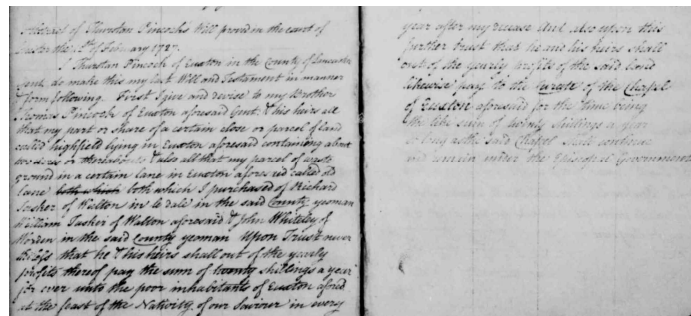 Abstract of Thurstan Pincock's Will proved in the court of
the 1st of February 1727.
I Thurstan Pincock of Euxton in the County of Lancaster
Gent. do make this my last Will and Testament in manner
& form following. First I give and devise to my Brother
Thomas Pincock of Euxton aforesaid Gent. & his heirs all
that my part or share of a certain close or parcel of land
called highfield lying in Euxton aforesaid containing about
two acres or thereabouts & also all that my parcel of waste
ground in a certain lane in Euxton aforesaid called old
Lane both which both which I purchased of Richard
Tasker of Walton in le dale in the said County yeoman
William Tasker of Walton aforesaid & John Whiteley of
in the said County yeoman Upon Trust never
theless that he & his heirs shall out of the yearly
profits thereof pay the sum of twenty shillings a year
for ever unto the poor inhabitants of Euxton afores'd
at the feast of the Nativity of our Saviour in every
year after my decease And also upon this
further trust that he and his heirs shall
out of the yearly profits of the said land
likewise pay to the Curate of the Chapel
of Euxton aforesaid for the time being
the like sum of twenty shillings a year
so long as the said Chapel shall continue
and remain under the Episcopal Government